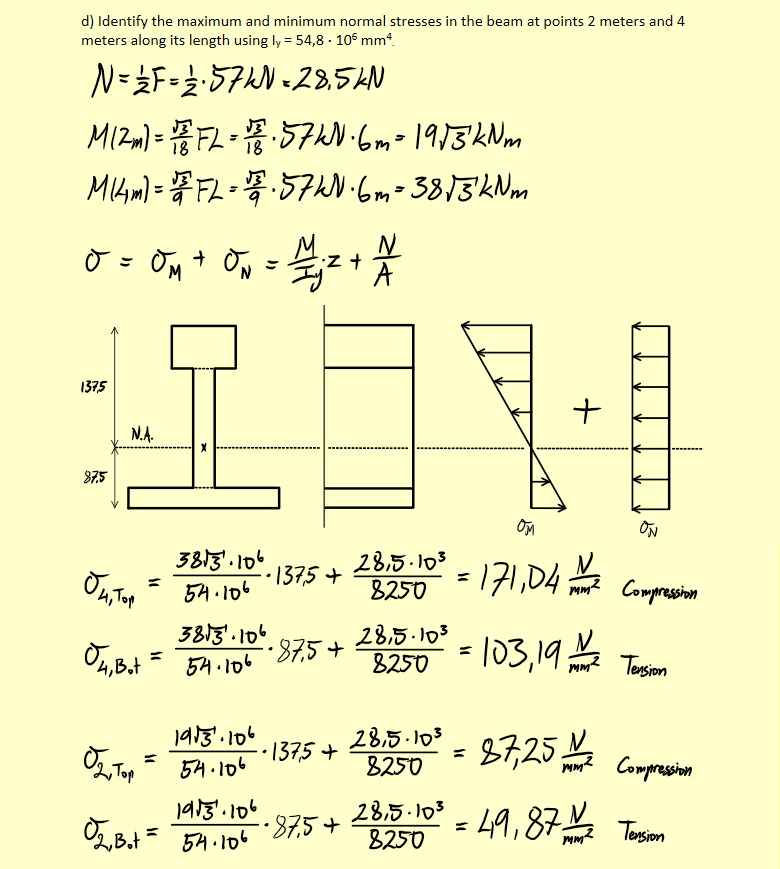 d) Identify the maximum and minimum normal stresses in the beam at points 2 meters and 4
meters along its length using Iy = 54,8 · 10⁶ mm⁴.
N = 1/2 F = 1/2 · 57kN = 28,5kN
M(2m) = √3/18 FL = √3/18 · 57kN · 6m = 19√3 kNm
M(4m) = √3/9 FL = √3/9 · 57kN · 6m = 38√3 kNm
σ = σM + σN = M/Iy · z + N/A
137,5
N.A.
x
+
87,5
σM σN
σ4,Top = 38√3 · 10⁶ / 54 · 10⁶ · 137,5 + 28,5 · 10³ / 8250 = 171,04 N/mm² Compression
σ4,Bot = 38√3 · 10⁶ / 54 · 10⁶ · 87,5 + 28,5 · 10³ / 8250 = 103,19 N/mm² Tension
σ2,Top = 19√3 · 10⁶ / 54 · 10⁶ · 137,5 + 28,5 · 10³ / 8250 = 87,25 N/mm² Compression
σ2,Bot = 19√3 · 10⁶ / 54 · 10⁶ · 87,5 + 28,5 · 10³ / 8250 = 49,87 N/mm² Tension